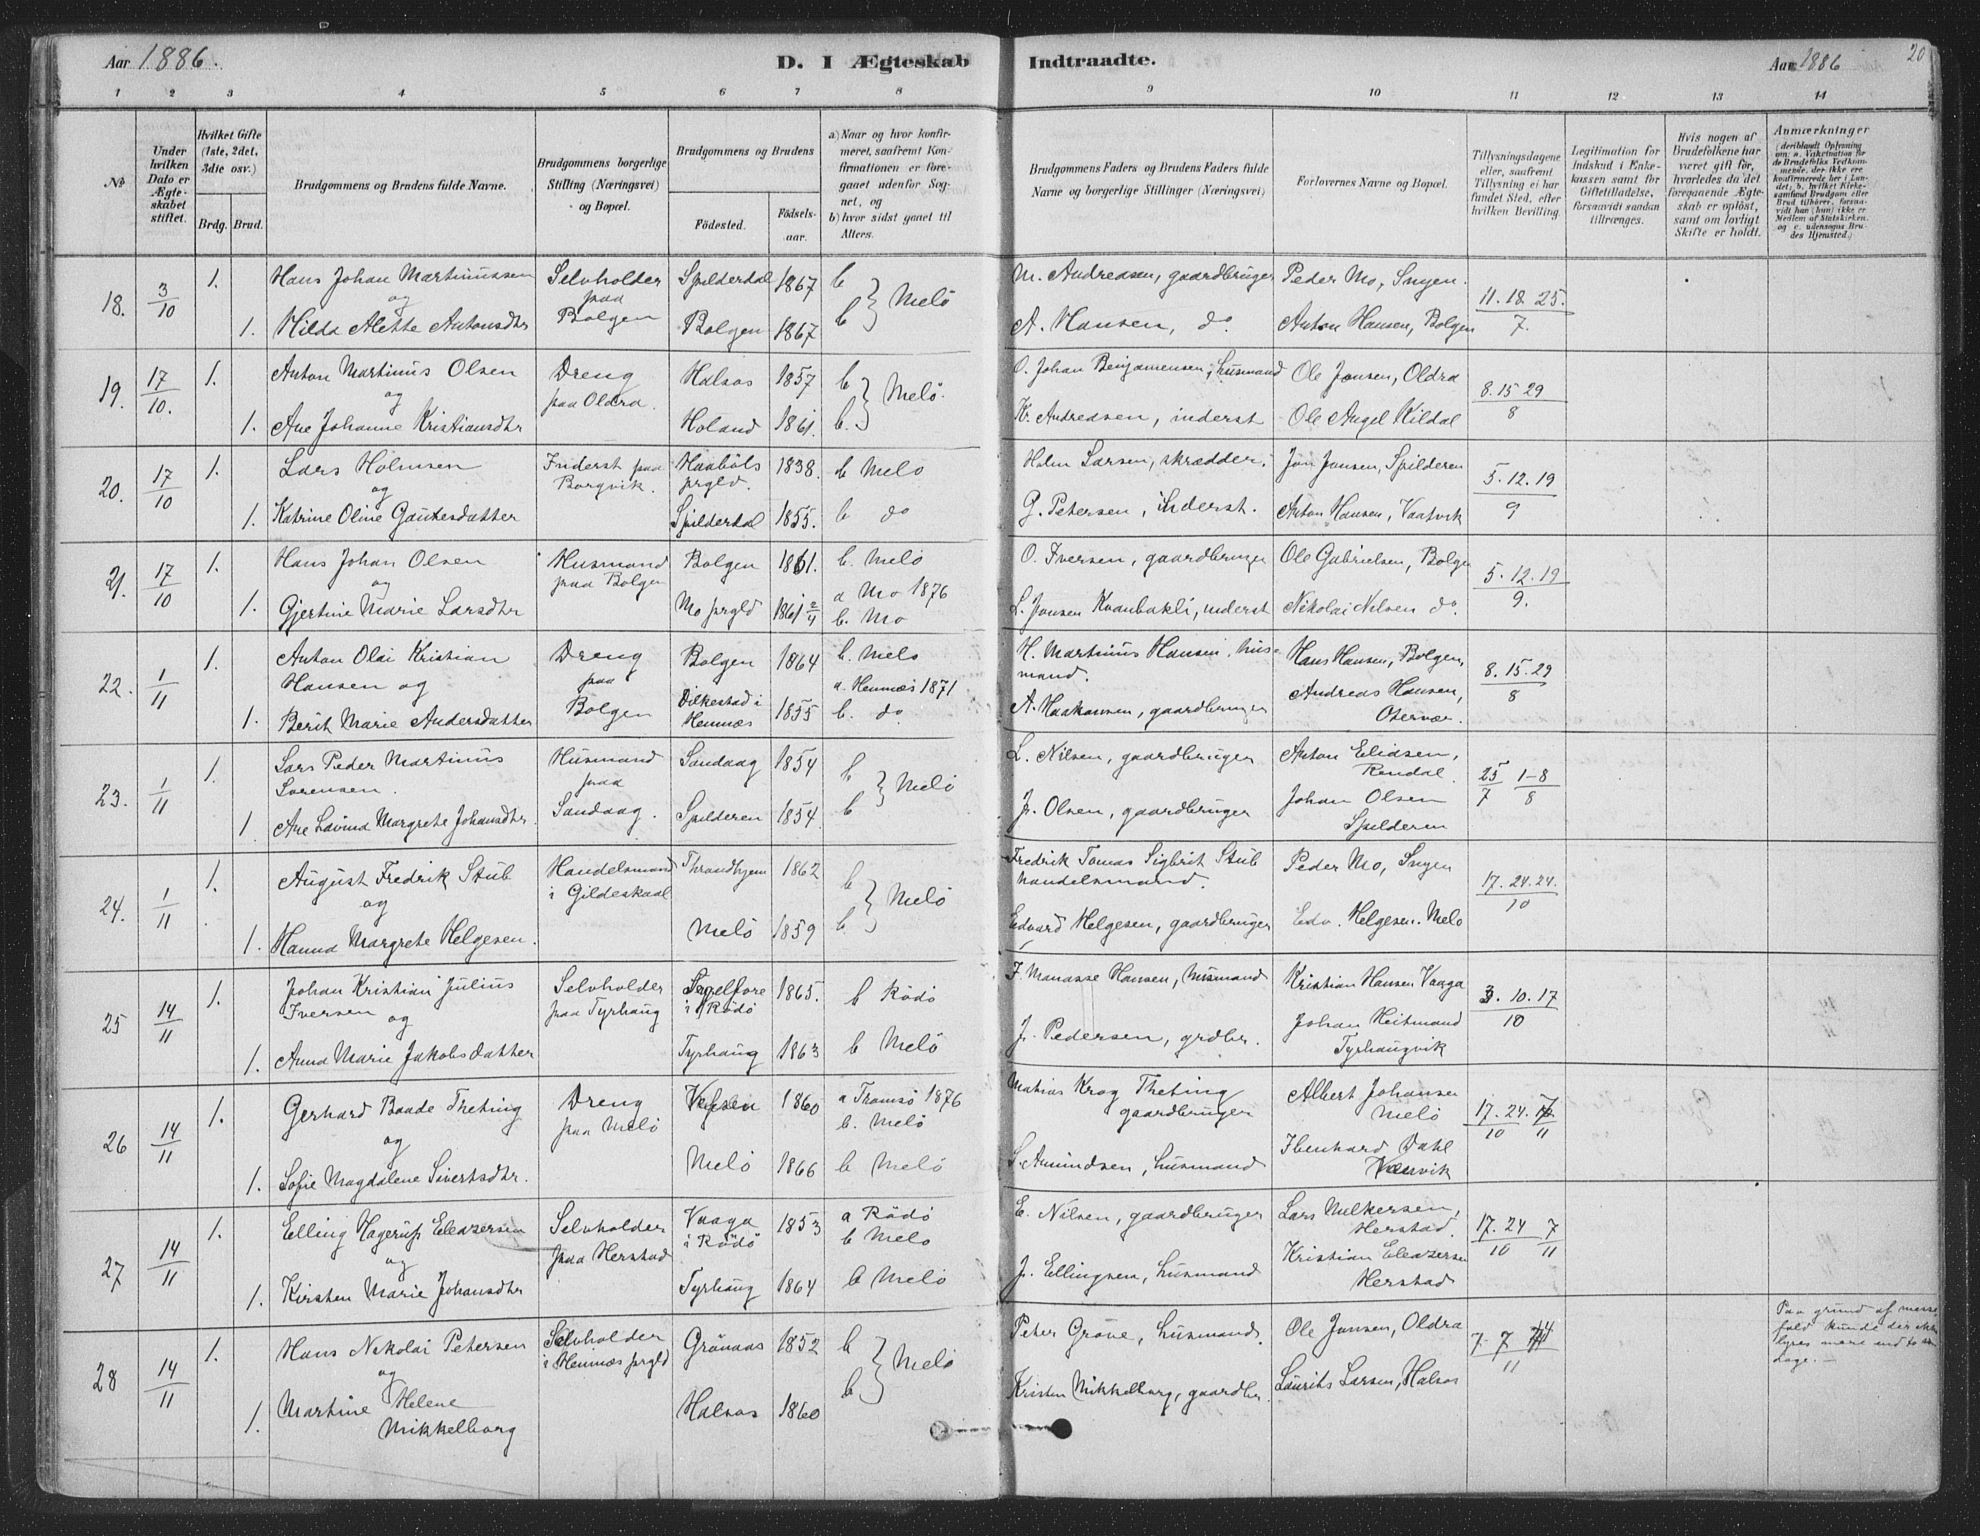 Aar 1886.
D. I Ægteskab
Indtraadte.
Aar 1886
20
1 2 3 4 5 6 7 8 9 10 11 12 13 14
No
Under hvilken Dato er Ægteskabet stiftet.
Hvilket Gifte (1ste, 2det, 3die osv.)
Brdg. Brud.
Brudgommens og Brudens fulde Navne.
Brudgommens borgerlige Stilling (Næringsvei) og Bopæl.
Brudgommens og Brudens
Fødested.
Fødselsaar.
a) Naar og hvor konfirmeret, saafremt Konfirmationen er foregaaet udenfor Sognet, og
b) hvor sidst gaaet til Alters.
Brudgommens Faders og Brudens Faders fulde Navne og borgerlige Stillinger (Næringsvei)
Forlovernes Navne og Bopæl.
Tillysningsdagene eller, saafremt Tillysning ei har fundet Sted, efter hvilken Bevilling
Legitimation for Indskud i Enkekassen samt for Giftetilladelse, forsaavidt saadan tiltrænges.
Hvis nogen af Brudefolkene har været gift før, hvorledes da det foregaaende Ægteskab er opløst, samt om lovligt Skifte er holdt.
Anmærkninger
18. 3/10 1. Hans Johan Martinussen Selvholder Spilderdal 1867 b M. Andreasen, gaardbruger Peder Mo, Engen. 11. 18. 25.
og paa } Melö 7.
1. Hilda Alette Antonsdtr Bolgen Bolgen 1867 b A. Hansen, do. Anton Hansen, Bolgen
19. 17/10. 1. Anton Martinus Olsen Dreng Halsos 1857 b O. Johan Benjamensen, husmand Ole Jensen, Oldra 8. 15 29
og paa Oldra. } Melö. 8
1. Ane Johanne Kristiansdtr Holand 1861. b. Kr. Andreasen, inderst Ole Angel Kildal
20. 17/10 1. Lars Holmsen Inderst paa Haaböls 1838. b Melö Holm Larsen, skrædder. Jon Jensen, Spilderen 5. 12. 19
og Borgvik. prgld. 9
1. Katrine Oline Gautesdatter Spilderdal 1855. b do G. Petersen, inderst. Anton Hansen, Vaatvik
21. 17/10 1. Hans Johan Olsen Husmand Bolgen 1861. b. Melö O. Iversen, gaardbruger Ole Gabrielsen, Bolgen 5. 12. 19
og paa Bolgen a Mo 1876 9.
1. Gjertine Marie Larsdtr Mo prgld 1861 2/4 b. Mo L. Jensen Kvanbakli, inderst Nikolai Nilsen do.
22. 1/11 1. Anton Olai Kristian Dreng Bolgen 1864 b. Melö H. Martinus Hansen, hus- Hans Hansen, Bolgen, 8. 15. 29
Hansen og paa a. Hemnæs 1871 mand. Andreas Hansen, 8
1. Berit Marie Andersdatter Bolgen Hemnæs 1855 b. do. A. Haakonsen, gaardbruger
23. 1/11 1. Lars Peder Martinus Husmand Sandaag 1854 b L. Nilsen, gaardbruger Anton Eliasen, 25/7 1-8/8
Sorensen. paa } Melö Rendal.
1 Ane Lovina Margrete Johansdtr. Sandaag. Spilderen 1854. b J. Olsen, gaardbruger Johan Olsen
Spilderen
24. 1/11 1. August Fredrik Stub Handelsmand Throndhjem 1862 b Fredrik Tomas Sigbrit Stub Peder Mo, Engen 17. 24. 24.
og i Gildeskaal } Melö handelsmand. 10
1. Hanna Margrete Helgesen. Melö 1859 b Edvard Helgesen, gaardbruger Edv. Helgesen. Melö
25 14/11 1. Johan Kristian Julius Selvholder Selfore 1865. b Rödö I. Manasse Hansen, husmand Kristian Hansen Vaaga 3. 10. 17
Iversen og paa Tyrhaug i Rödö 10
1. Anna Marie Jakobsdatter Tyrhaug 1863 b Melö J. Pedersen, grdbr. Johan Heitmand
Tyrhaugvik
26 14/11 1. Gerhard Baade Theting Dreng Vefsen 1860 a Tromsö 1876 Matias Krog Theting Albert Johansen 17. 24.
og paa Melö b. Melö gaardbruger Melö 10 11
1. Sofie Magdalene Sivertsdtr. Melö 1866 b Melö S. Amundsen, husmand Ibenhard Dahl
Værvik
27 14/11 1. Elling Hagerup Eleazersen Selvholder Vaaga 1853 a Rödö E. Nilsen, gaardbruger Lars Mulkersen, 17. 24 7
og paa Herstad i Rödö b Melö Herstad. 10 11
1. Kirsten Marie Johansdtr Tyrhaug 1864 b Melö J. Ellingsen, husmand Kristian Eleazersen
Herstad
28 14/11 1. Hans Nikolai Petersen Selvholder Grönaas 1852 b Peter Gröve, husmand. Ole Jensen, Oldra 7. 7 14 Paa grund af messe
og i Hemnæs prgld } Melö 11 fald kunde der ikke
1. Martine Helene Halsos 1860 b Kristen Mikkelborg, gaardbr. Laurits Larsen, Halsos lyses mere end to
Mikkelborg dage. —